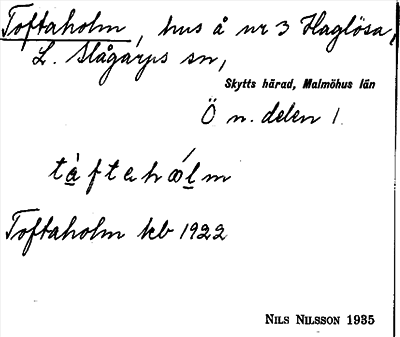 Toftaholm, hus å nr 3 Haglösa,
L. Slågarps sn,
Skytts härad, Malmöhus län
Ö n. delen 1.
Toftaholm kb 1922
NILS NILSSON 1935